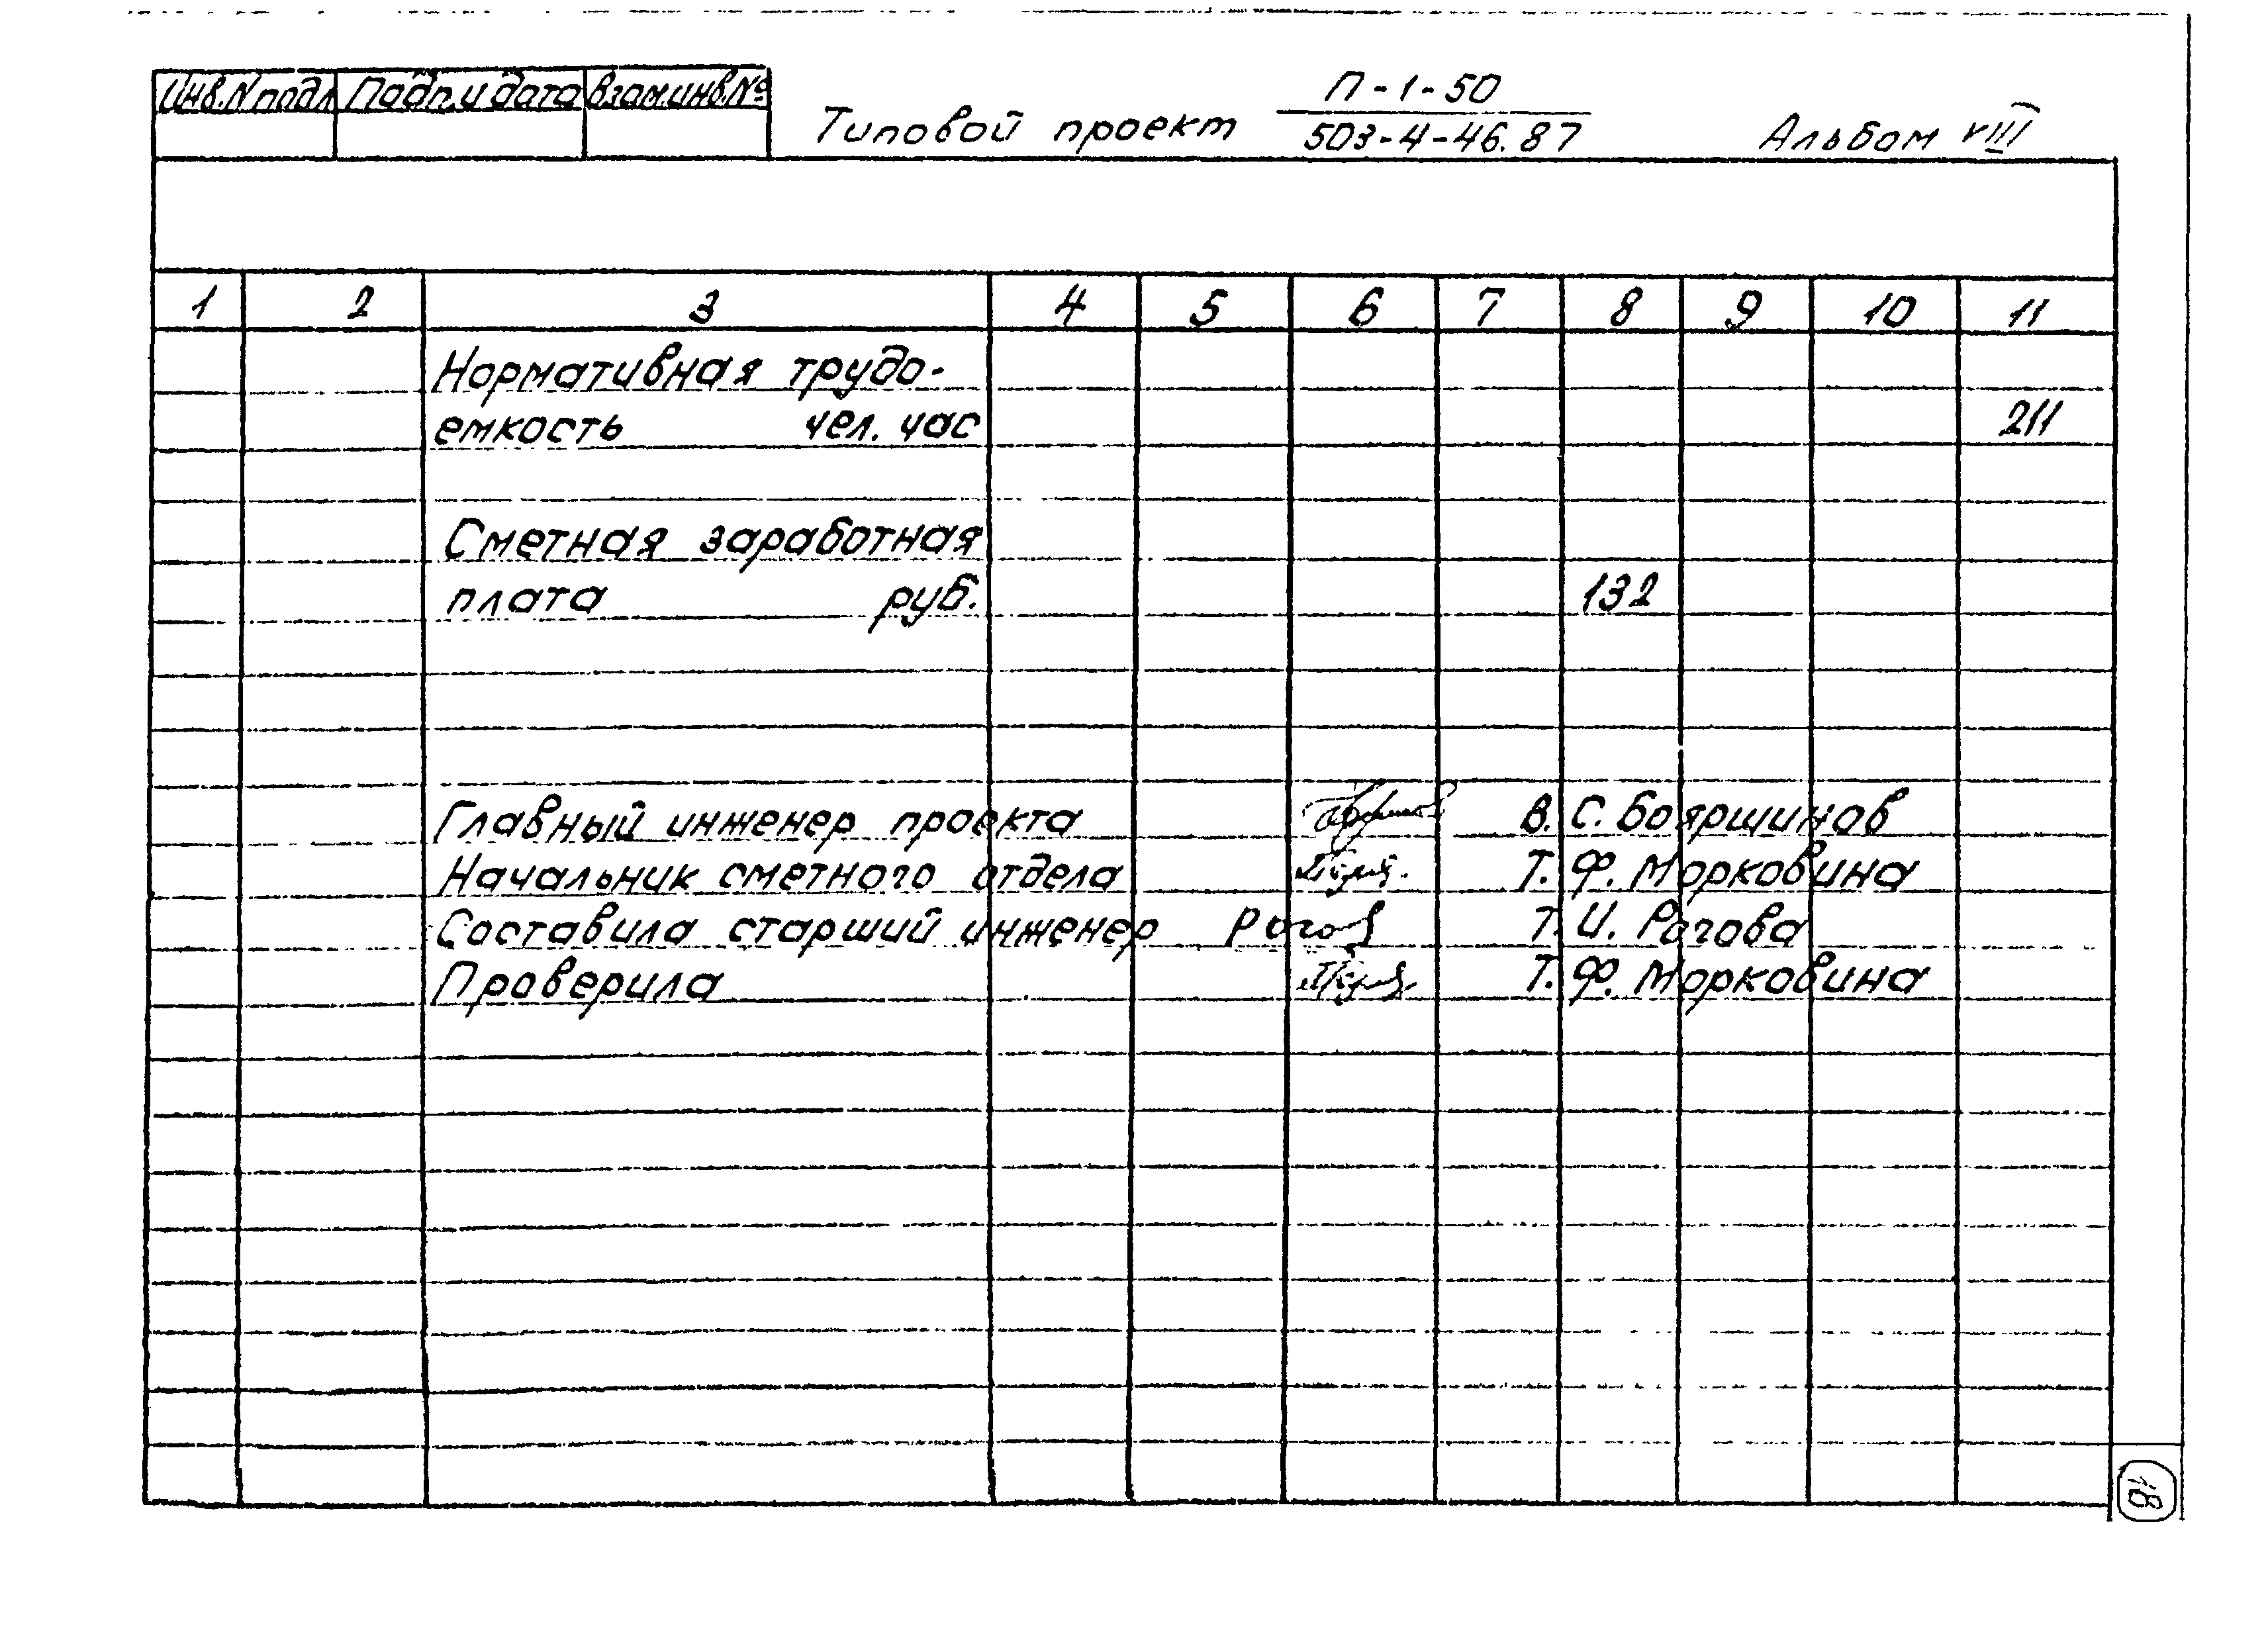 Инв.N подл Подп. и дата Взам.инв.№
П-1-50
Типовой проект 503-4-46.87 Альбом VIII
1 2 3 4 5 6 7 8 9 10 11
Нормативная трудо-
емкость чел. час 211
Сметная заработная
плата руб. 132
Главный инженер проекта В. С. Бояршинов
Начальник сметного отдела Т. Ф. Морковина
Составила старший инженер Рогов Т. И. Рогова
Проверила Т. Ф. Морковина
18